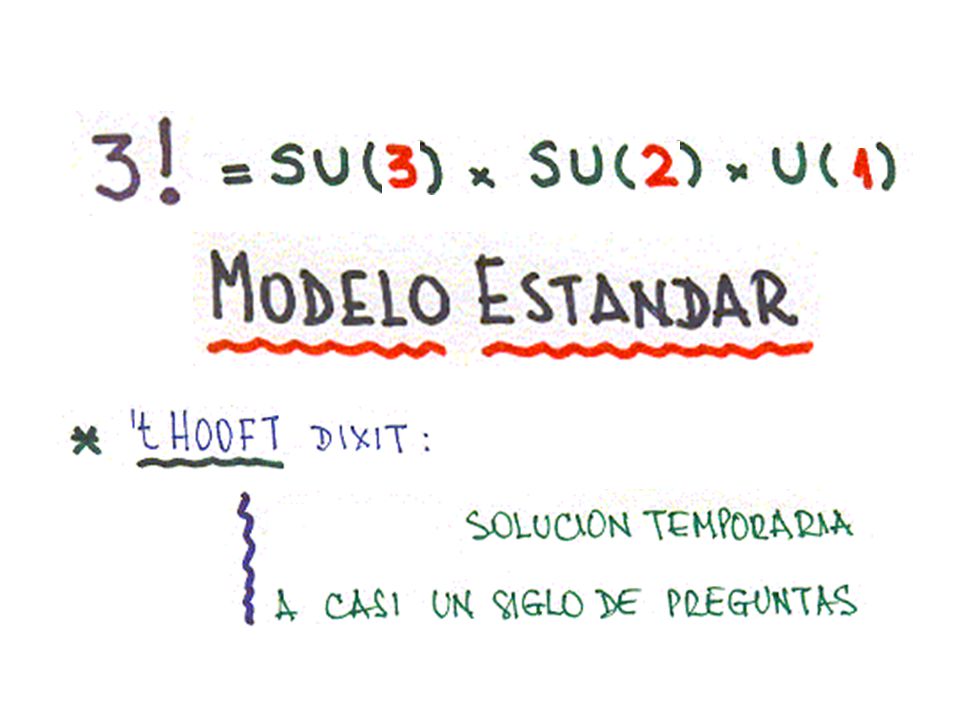 3! = SU(3) × SU(2) × U(1)
MODELO ESTANDAR
* 't HOOFT DIXIT:
SOLUCION TEMPORARIA
A CASI UN SIGLO DE PREGUNTAS